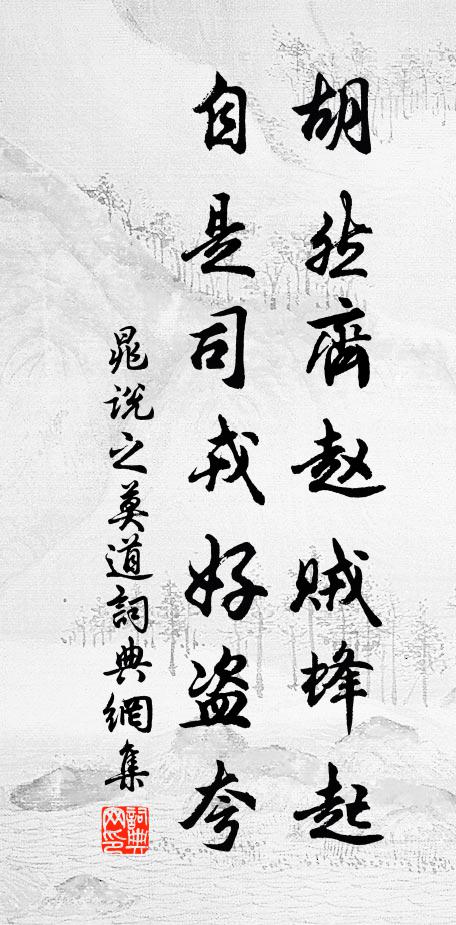 胡然齊赵贼蜂起
自是司戎好盗夸
晁说之莫道詞典網集
詞典网印